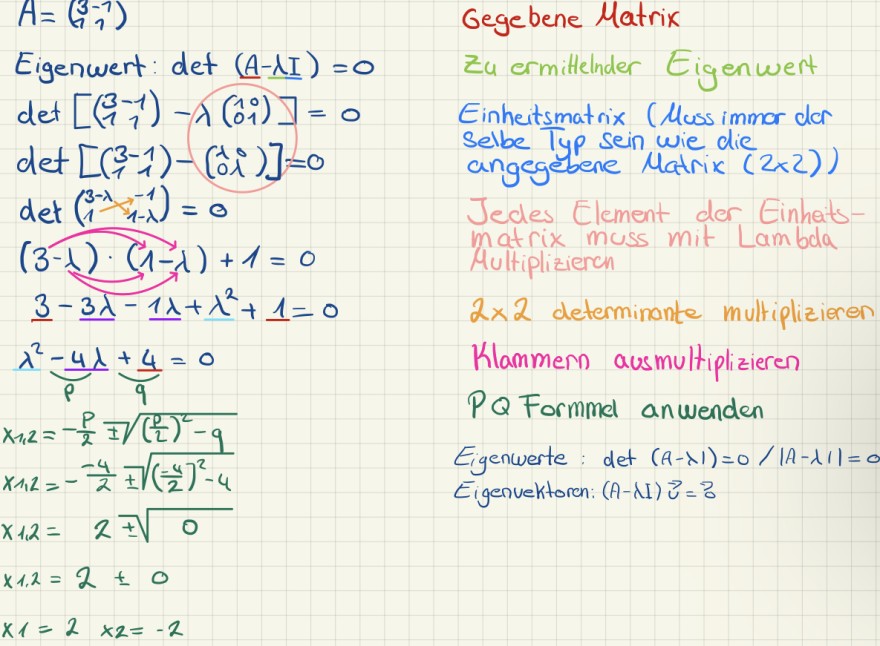 A = (3 -1
1 1)
Eigenwert: det (A-λI) = 0
det [(3 -1
1 1) - λ (1 0
0 1)] = 0
det [(3 -1
1 1) - (λ 0
0 λ)] = 0
det (3-λ -1
1 1-λ) = 0
(3-λ) · (1-λ) + 1 = 0
3 - 3λ - 1λ + λ² + 1 = 0
λ² - 4λ + 4 = 0
p q
x1,2 = -p/2 ± √(p/2)² - q
x1,2 = - -4/2 ± √(-4/2)² - 4
x1,2 = 2 ± √0
x1,2 = 2 ± 0
x1 = 2 x2 = -2
Gegebene Matrix
Zu ermittelnder Eigenwert
Einheitsmatrix (Muss immer der
Selbe Typ sein wie die
angegebene Matrix (2x2))
Jedes Element der Einheits-
matrix muss mit Lambda
Multiplizieren
2x2 determinante multiplizieren
Klammern ausmultiplizieren
PQ Formmel anwenden
Eigenwerte : det (A-λI)=0 / |A-λI|=0
Eigenvektoren: (A-λI)